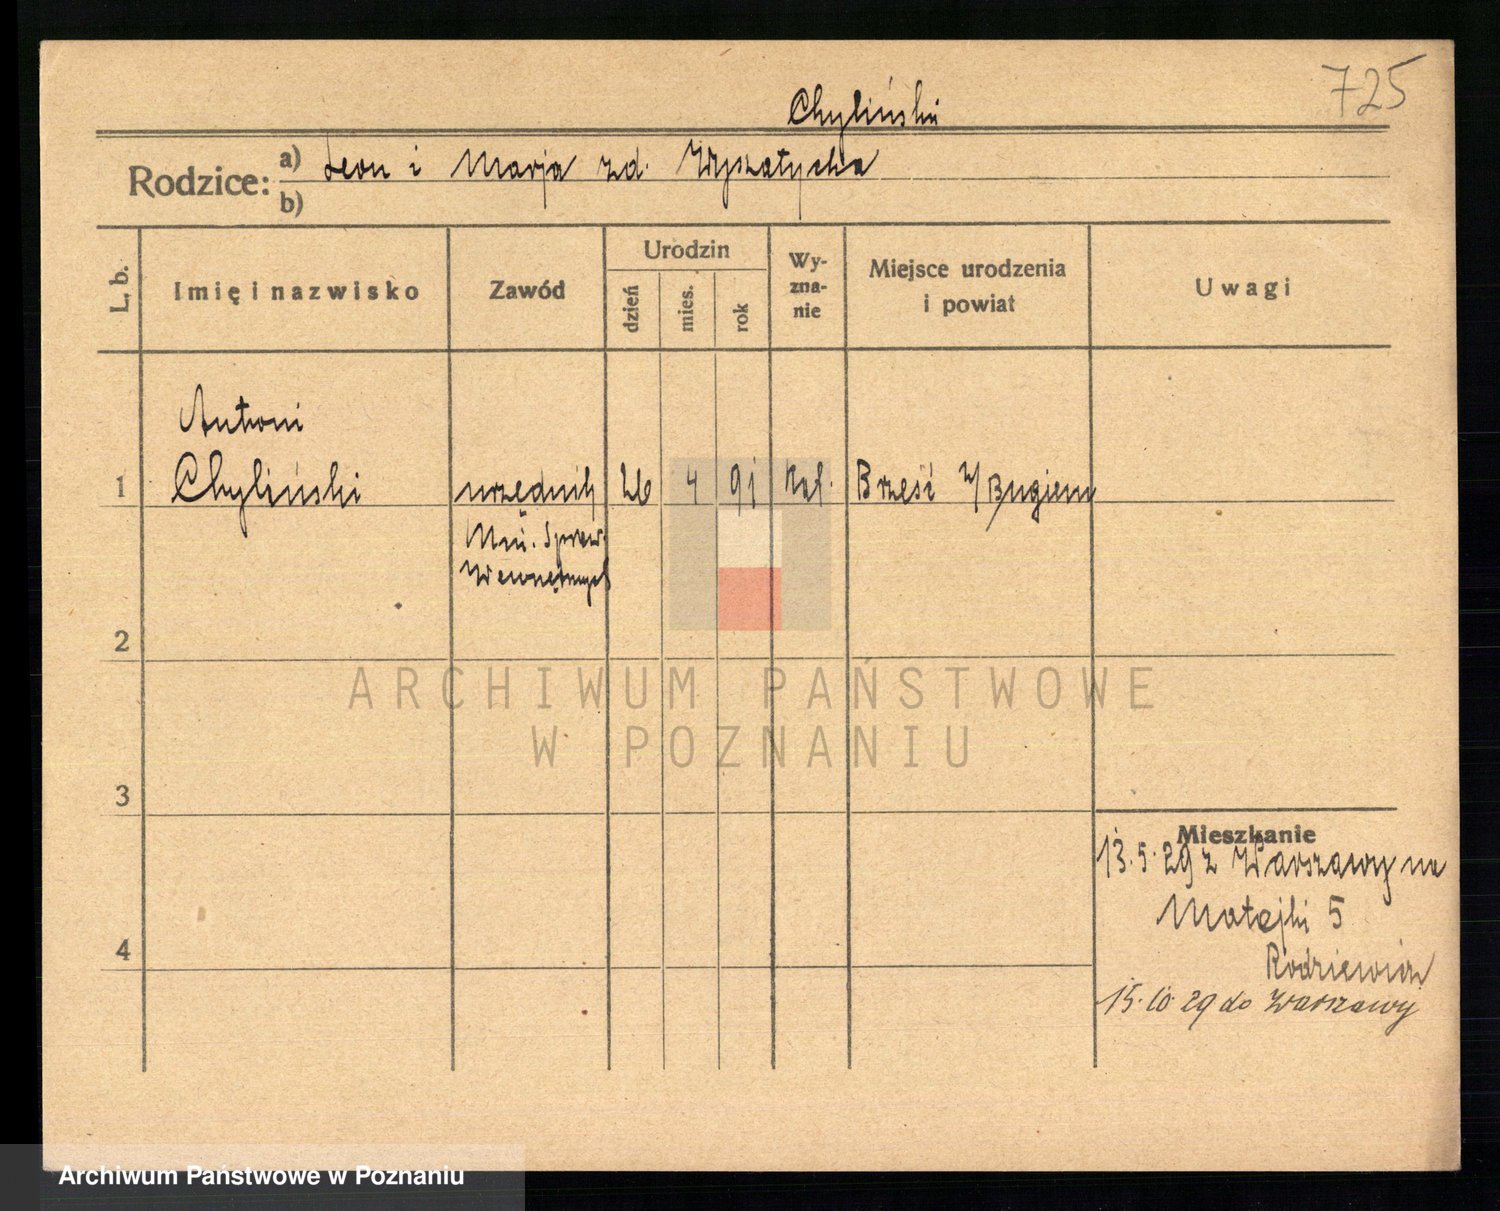 725
Chyliński
Rodzice:
a) Leon i Marja zd. Wyszatycka
b)
L. b.
Imię i nazwisko
Zawód
Urodzin
dzień
mies.
rok
Wy-
zna-
nie
Miejsce urodzenia
i powiat
Uwagi
Antoni
1 Chyliński urzędnik 26 4 91 kat. Brześć n/Bugiem
Min. Spraw.
Wewnętrznych
2
3
4
Mieszkanie
13.5.29 z Warszawy na
Matejki 5
Rodziewicz
15.10.29 do Warszawy
ARCHIWUM PAŃSTWOWE
W POZNANIU
Archiwum Państwowe w Poznaniu